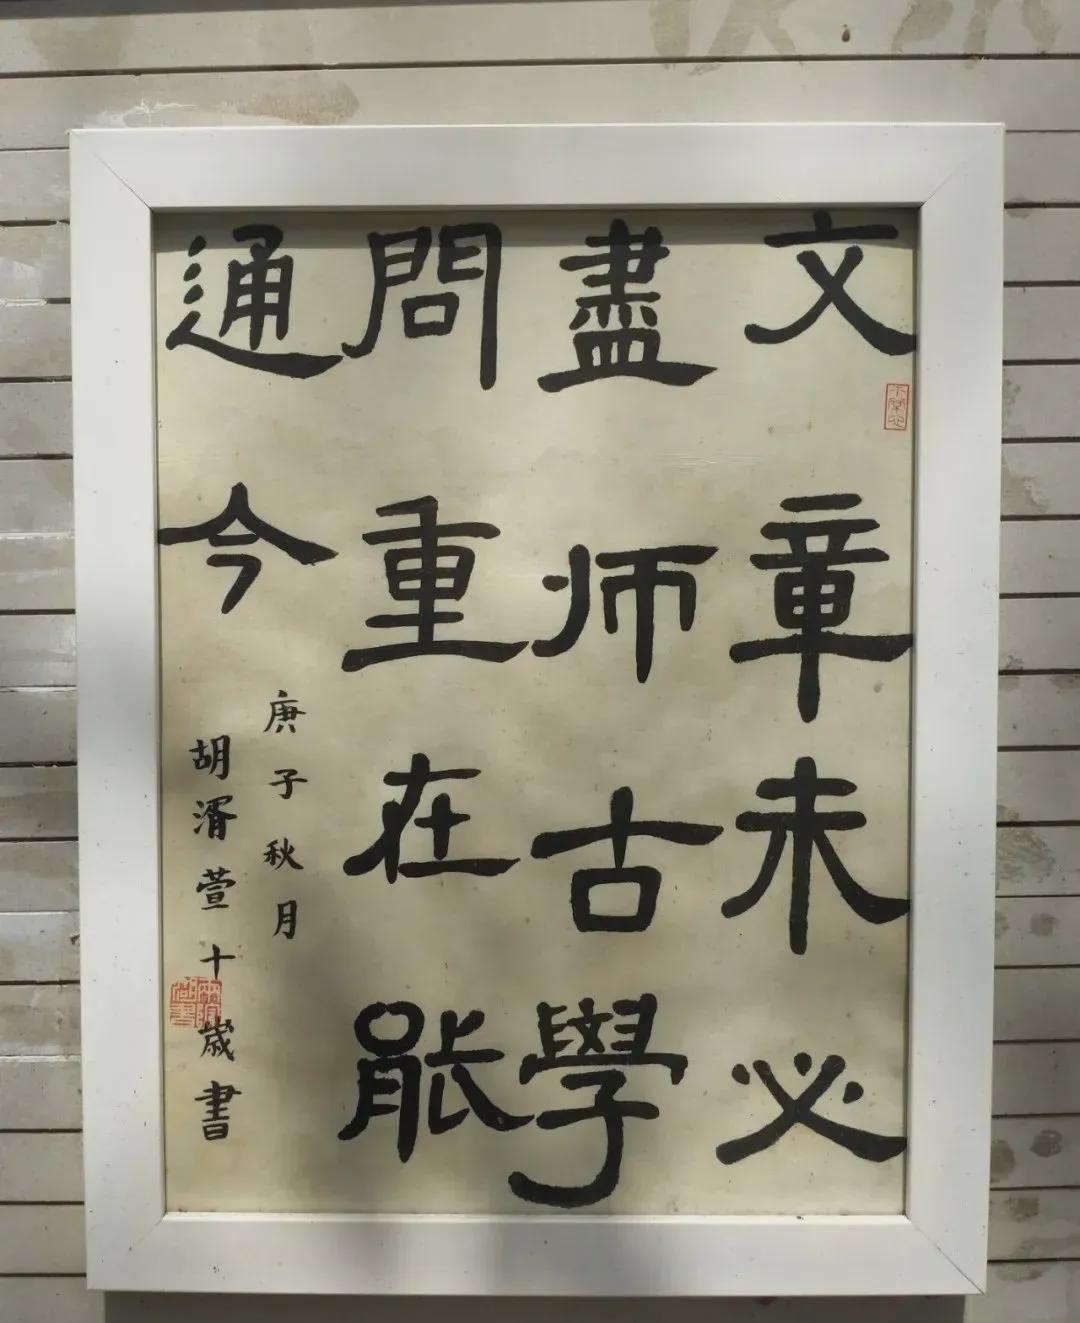 文章未必
盡师古學
問重在能
通今
庚子秋月
胡渭萱十歲書